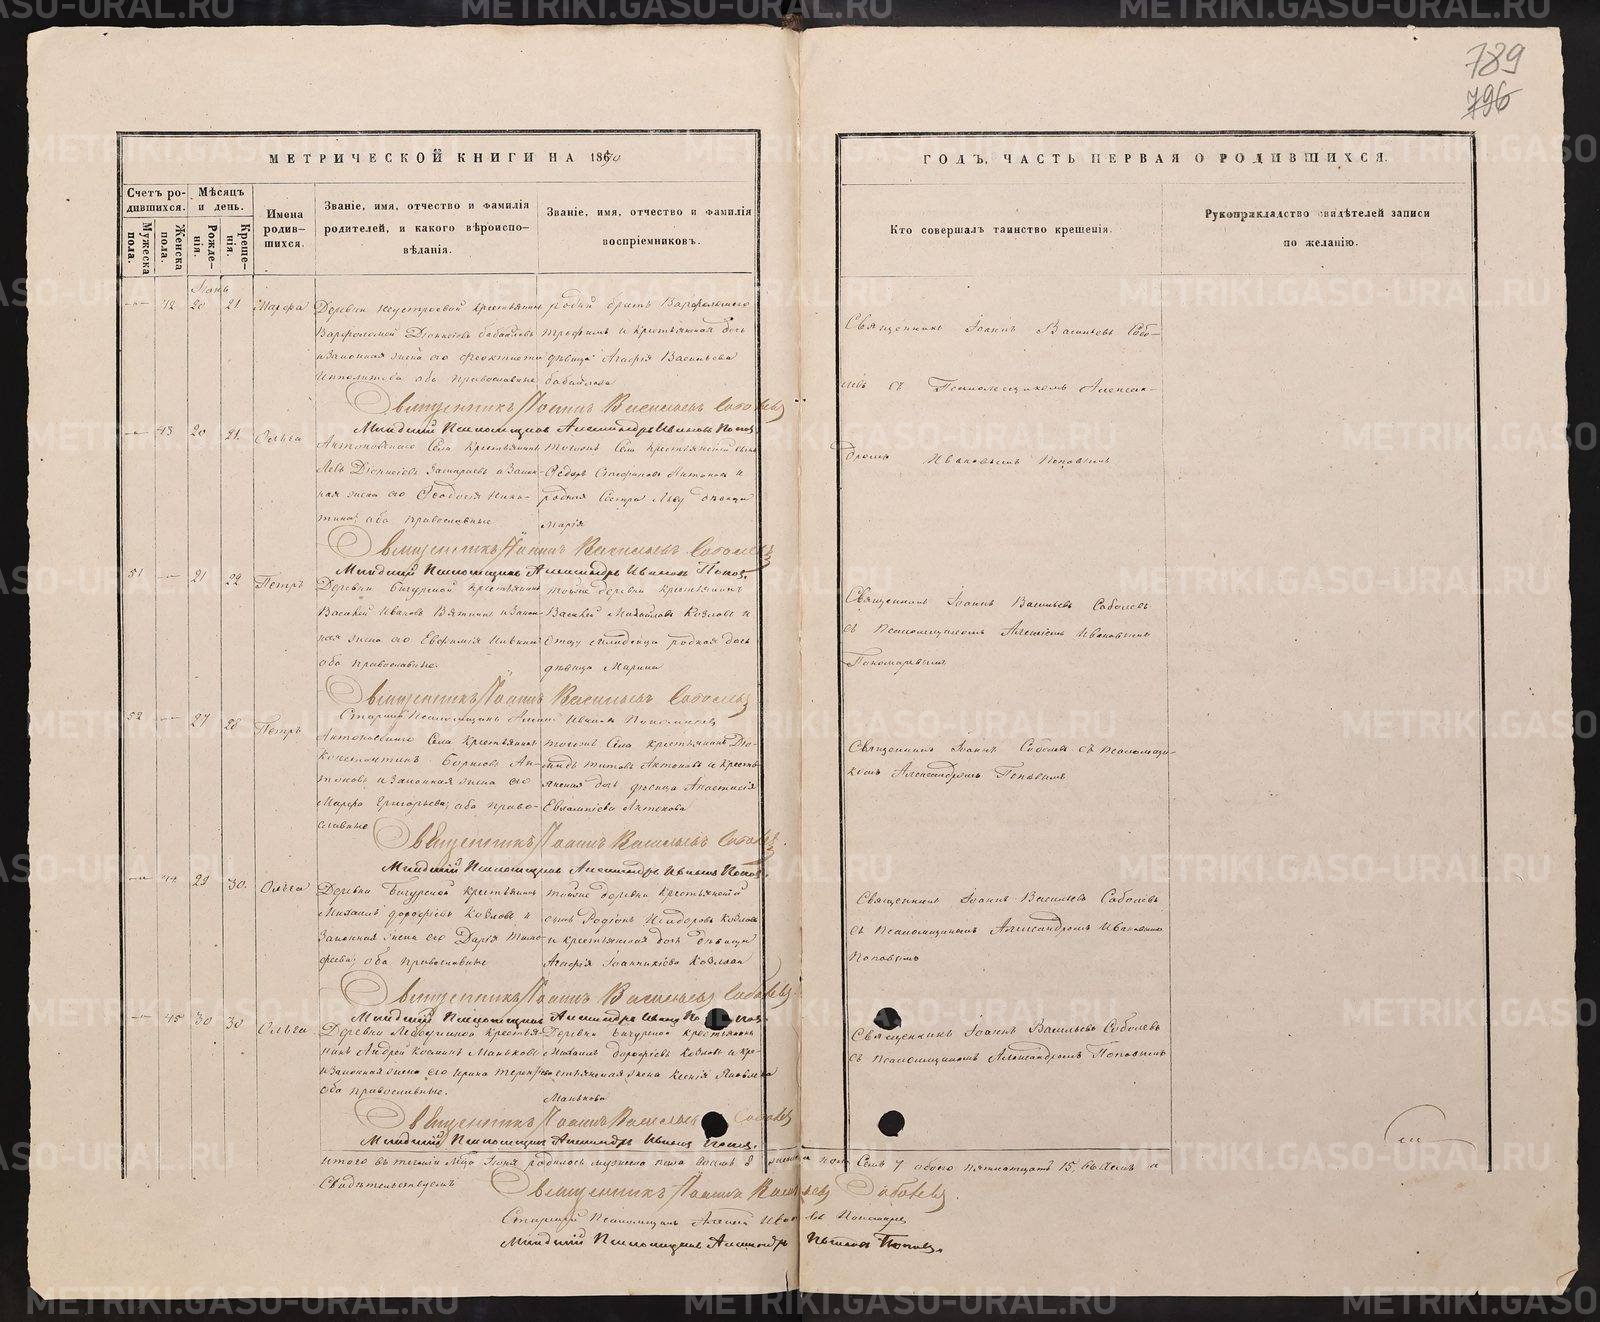 789
796
МЕТРИЧЕСКОЙ КНИГИ НА 1870
ГОДЪ, ЧАСТЬ ПЕРВАЯ О РОДИВШИХСЯ.
Счетъ ро-
дившихся.
Мужеска
пола.
Женска
пола.
Мѣсяцъ
и день.
Рожде-
нія.
Креще-
нія.
Имена
родив-
шихся.
Званіе, имя, отчество и фамилія
родителей, и какого вѣроиспо-
вѣданія.
Званіе, имя, отчество и фамилія
воспріемниковъ.
Кто совершалъ таинство крещенія.
Рукоприкладство свидѣтелей записи
по желанію.
Іюнь
42 20 21 Марѳа
Деревни крестьянинъ
Варфоломей Діонисіевъ Бабайловъ
и законная жена его
Ипполитова оба православные
родный братъ Варфоломея
Трофимъ и крестьянская дочь
дѣвица Агафія Васильева
Бабайлова
Священникъ Іоаннъ Васильевъ Собо-
левъ съ Псаломщикомъ Алексан-
дромъ Ивановымъ Поповымъ
Священникъ Іоаннъ Васильевъ Соболевъ
Младшій Псаломщикъ Александръ Ивановъ Поповъ
43 20 21 Ольга
Антоновскаго Села крестьянинъ
Левъ Діонисіевъ и закон-
ная жена его Ѳеодосія Ники-
тина; оба православные
тогожъ Села крестьянскій сынъ
Ѳедоръ Стефановъ Антоновъ и
родная Сестра Льву дѣвица
Марія
Священникъ Іоаннъ Васильевъ Соболевъ
Младшій Псаломщикъ Александръ Ивановъ Поповъ
51 21 22 Петръ
Деревни Бичурской крестьянинъ
Василій Ивановъ Вяткинъ и закон-
ная жена его Евфимія
оба православные.
тойже деревни крестьянинъ
Василій Михайловъ Козловъ и
Отцу младенца родная дочь
дѣвица Марина
Священникъ Іоаннъ Васильевъ Соболевъ
съ псаломщикомъ Алексіемъ Ивановымъ
Пономаревымъ
Священникъ Іоаннъ Васильевъ Соболевъ
Старшій Псаломщикъ Ивановъ Пономаревъ
52 27 28 Петръ
Антоновскаго Села крестьянинъ
Константинъ Борисовъ Ан-
тоновъ и законная жена его
Марѳа Григорьева; оба право-
славные
тогожъ Села крестьянинъ Діо-
мидъ Титовъ Антоновъ и кресть-
янская дочь дѣвица Анастасія
Евлампіева Антонова
Священникъ Іоаннъ Соболевъ съ псаломщи-
комъ Александромъ Поповымъ
Священникъ Іоаннъ Васильевъ Соболевъ
Младшій Псаломщикъ Александръ Ивановъ Поповъ
44 29 30. Ольга
Деревни Бичурской крестьянинъ
Михаилъ Дорофіевъ Козловъ и
законная жена его Дарія Тимо-
феева; оба православные
тойже деревни крестьянскій
сынъ Родіонъ Исидоровъ Козловъ
и крестьянская дочь дѣвица
Агафія Іоанникіева Козлова
Священникъ Іоаннъ Васильевъ Соболевъ
съ псаломщикомъ Александромъ Ивановымъ
Поповымъ
Священникъ Іоаннъ Васильевъ Соболевъ
Младшій Псаломщикъ Александръ Ивановъ
45 30 30 Ольга
Деревни крестья-
нинъ Андрей Косминъ Маньковъ
и законная жена его Ирина Терентіева
оба православные.
Деревни Бичурской крестьянинъ
Михаилъ Дорофіевъ Козловъ и кре-
стьянская жена Ксенія Яковлева
Манькова
Священникъ Іоаннъ Васильевъ Соболевъ
съ псаломщикомъ Александромъ Поповымъ
Священникъ Іоаннъ Васильевъ Соболевъ
Младшій Псаломщикъ Александръ Ивановъ Поповъ
Итого въ теченіи мѣсяца Іюня родилось мужеска пола восемь 8 женска пола Семь 7 обоего пятнадцать 15,
Свидѣтельствуемъ
Священникъ Іоаннъ Васильевъ Соболевъ.
Старшій Псаломщикъ Алексій Ивановъ Пономаревъ
Младшій Псаломщикъ Александръ Ивановъ Поповъ.
METRIKI.GASO-URAL.RU